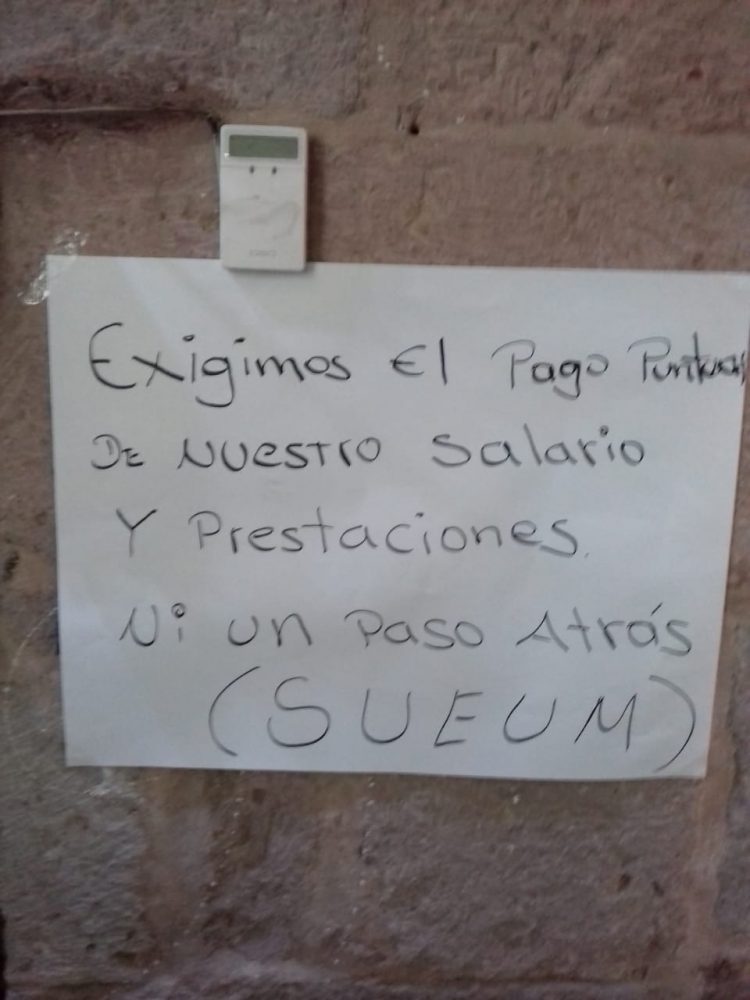 Exigimos El Pago Puntual
DE NUESTRO Salario
Y Prestaciones.
Ni un Paso Atrás
(SUEUM)